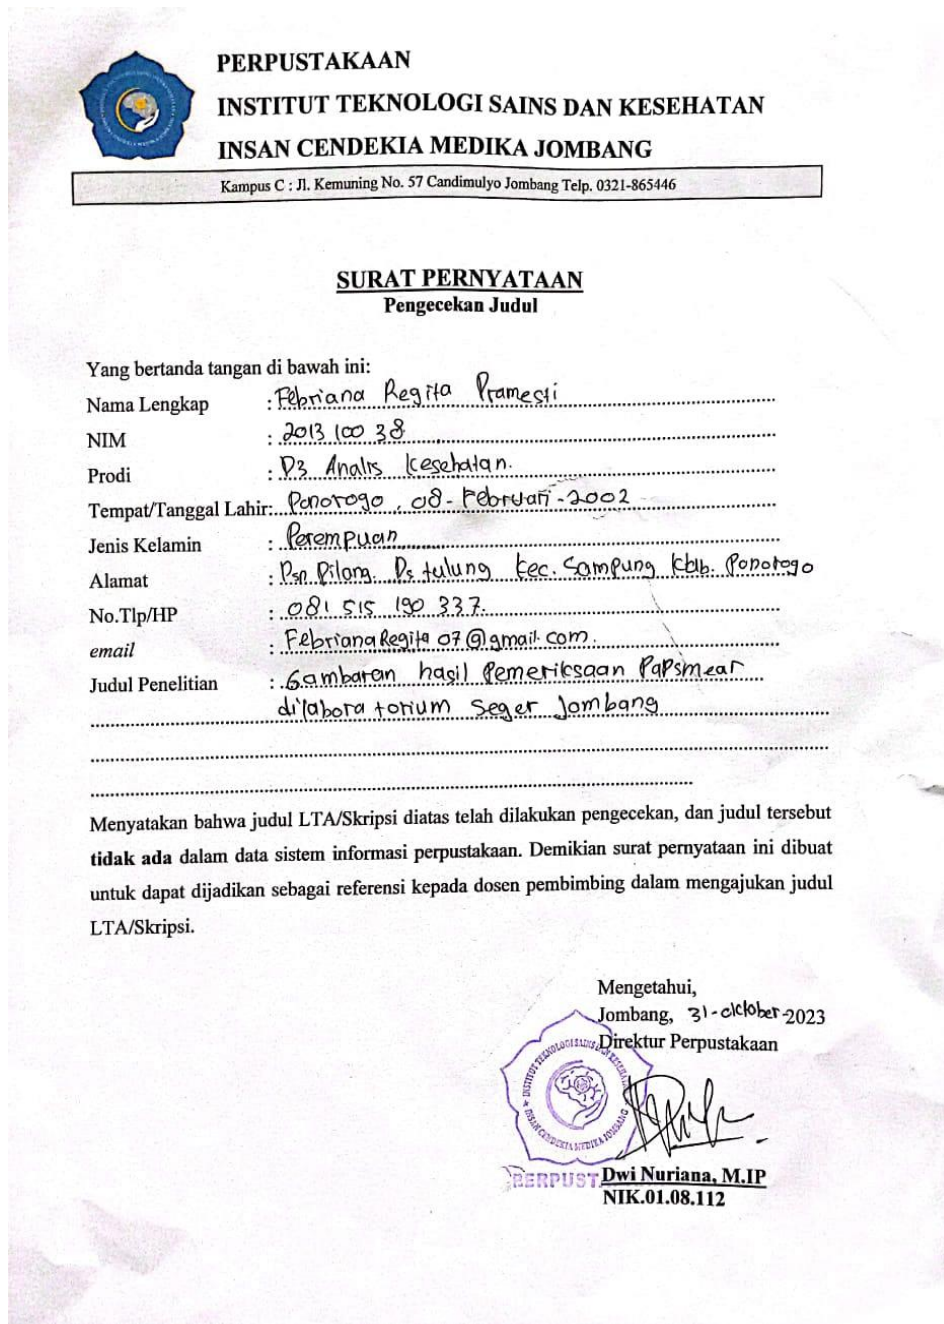 PERPUSTAKAAN
INSTITUT TEKNOLOGI SAINS DAN KESEHATAN
INSAN CENDEKIA MEDIKA JOMBANG
Kampus C : Jl. Kemuning No. 57 Candimulyo Jombang Telp. 0321-865446
SURAT PERNYATAAN
Pengecekan Judul
Yang bertanda tangan di bawah ini:
Nama Lengkap : Febriana Regita Pramesti
NIM : 2013 100 38
Prodi : D3 Analis Kesehatan.
Tempat/Tanggal Lahir: Ponorogo, 08-Februari-2002
Jenis Kelamin : Perempuan
Alamat : Dsn Pilang. Ds tulung kec. Sampung kab. Ponorogo
No.Tlp/HP : 081 515 190 337.
email : FebrianaRegita07@gmail.com.
Judul Penelitian : Gambaran hasil Pemeriksaan Papsmear
dilaboratorium Seger Jombang
Menyatakan bahwa judul LTA/Skripsi diatas telah dilakukan pengecekan, dan judul tersebut
tidak ada dalam data sistem informasi perpustakaan. Demikian surat pernyataan ini dibuat
untuk dapat dijadikan sebagai referensi kepada dosen pembimbing dalam mengajukan judul
LTA/Skripsi.
Mengetahui,
Jombang, 31-oktober-2023
Direktur Perpustakaan
INSTITUT TEKNOLOGI SAINS DAN KESEHATAN
INSAN CENDEKIA MEDIKA JOMBANG
PERPUST
Dwi Nuriana, M.IP
NIK.01.08.112